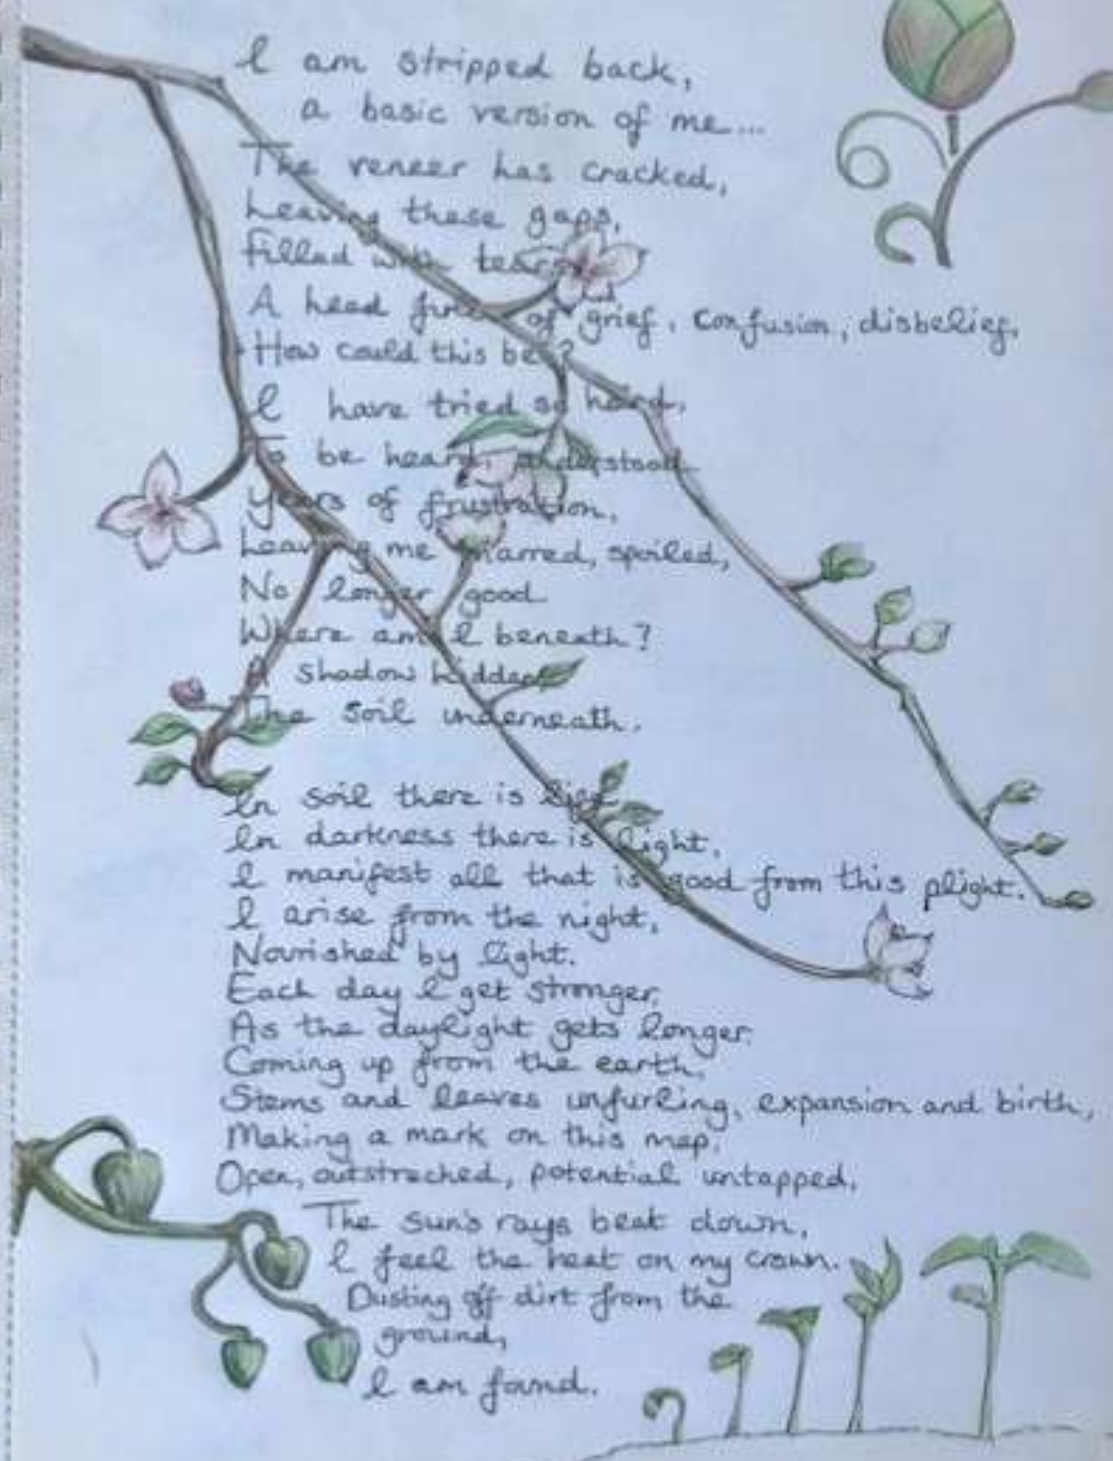 I am stripped back,
a basic version of me...
The veneer has cracked,
Leaving these gaps,
Filled with tears
A head full of grief, confusion, disbelief,
How could this be?
I have tried so hard,
To be heard, understood
Years of frustration,
Leaving me marred, spoiled,
No longer good
Where am I beneath?
A shadow hidden
The soil underneath.
In soil there is life
In darkness there is light,
I manifest all that is good from this plight.
I arise from the night,
Nourished by light.
Each day I get stronger,
As the daylight gets longer.
Coming up from the earth,
Stems and leaves unfurling, expansion and birth,
Making a mark on this map,
Open, outstreched, potential untapped,
The sun's rays beat down,
I feel the heat on my crown.
Dusting off dirt from the
ground,
I am found.